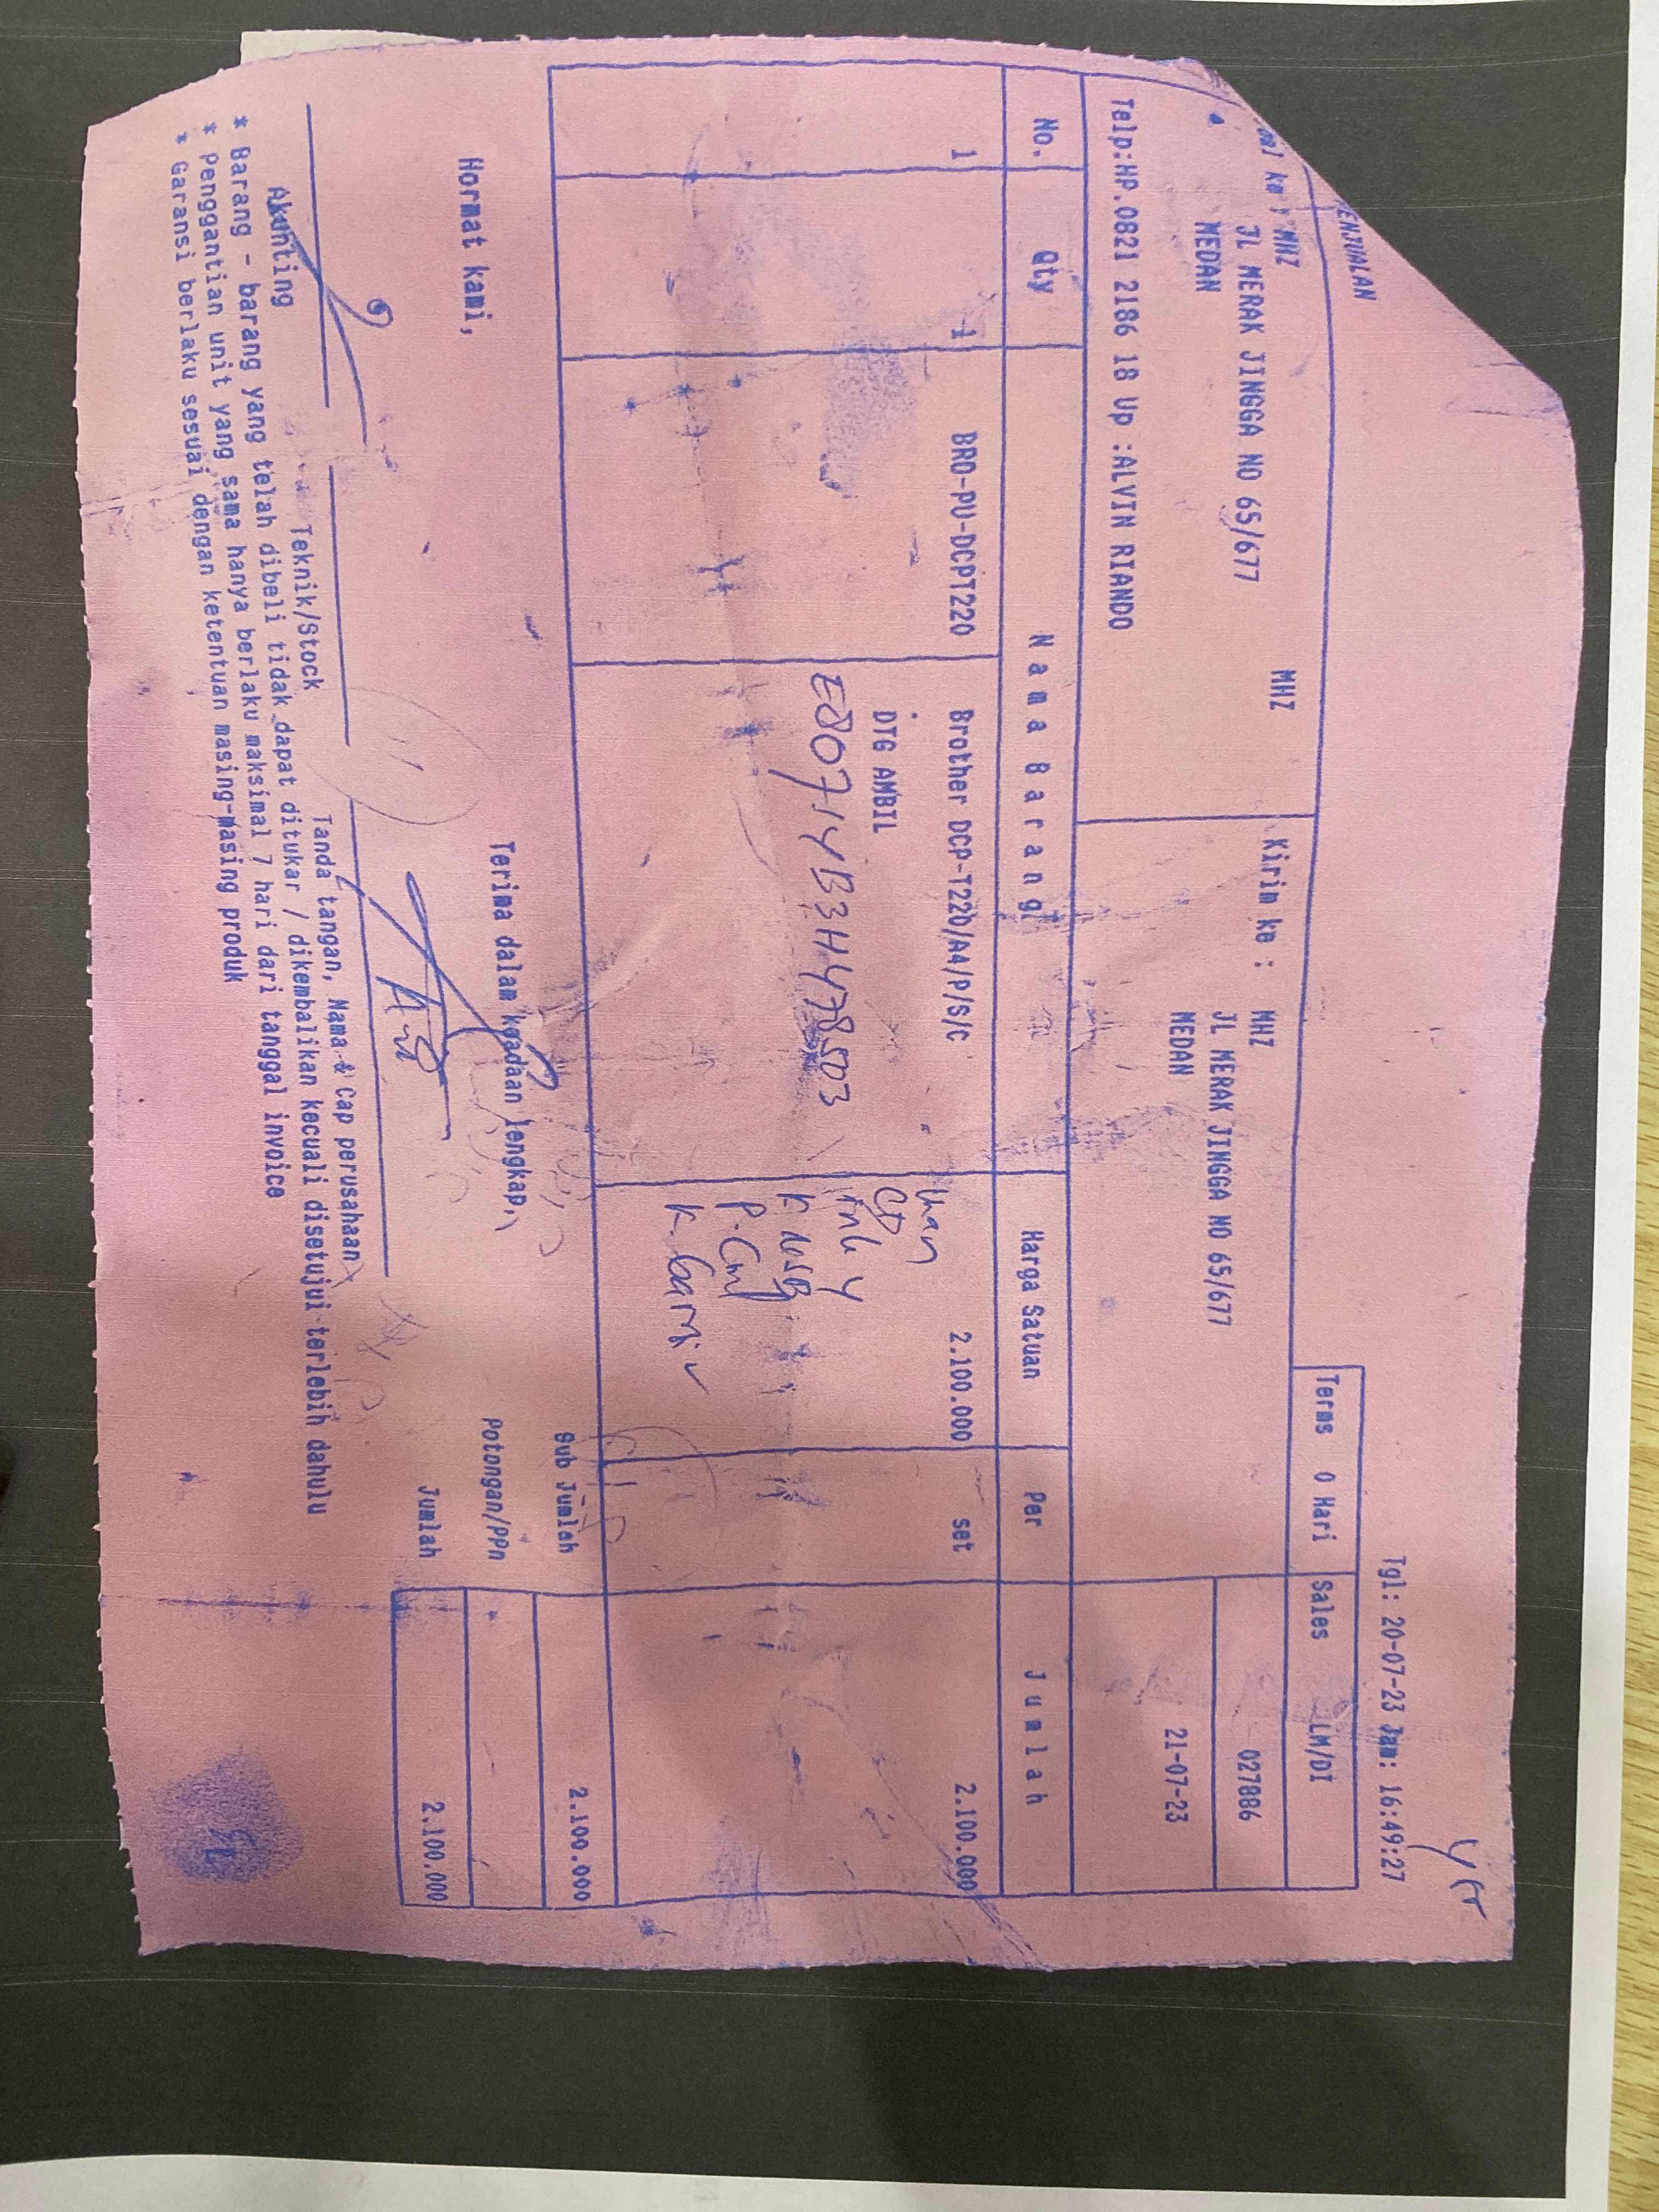 ENJUALAN
Tgl: 20-07-23 Jam: 16:49:27
Terms 0 Hari Sales LM/DI
MHZ MHZ
JL MERAK JINGGA NO 65/677
MEDAN
Kirim ke : MHZ
JL MERAK JINGGA NO 65/677
MEDAN
027886
21-07-23
Telp:HP.0821 2186 18 Up :ALVIN RIANDO
No. Qty Nama Barang Harga Satuan Per Jumlah
1 1 BRO-PU-DCPT220 Brother DCP-T220/A4/P/S/C 2.100.000 set 2.100.000
DTG AMBIL
E8071YB3H478503
CD
K. USB
K. Garansi
Hormat kami, Terima dalam keadaan lengkap,
Sub Jumlah 2.100.000
Potongan/PPn
Jumlah 2.100.000
Akunting Teknik/Stock Tanda tangan, Nama & Cap perusahaan
* Barang - barang yang telah dibeli tidak dapat ditukar / dikembalikan kecuali disetujui terlebih dahulu
* Penggantian unit yang sama hanya berlaku maksimal 7 hari dari tanggal invoice
* Garansi berlaku sesuai dengan ketentuan masing-masing produk